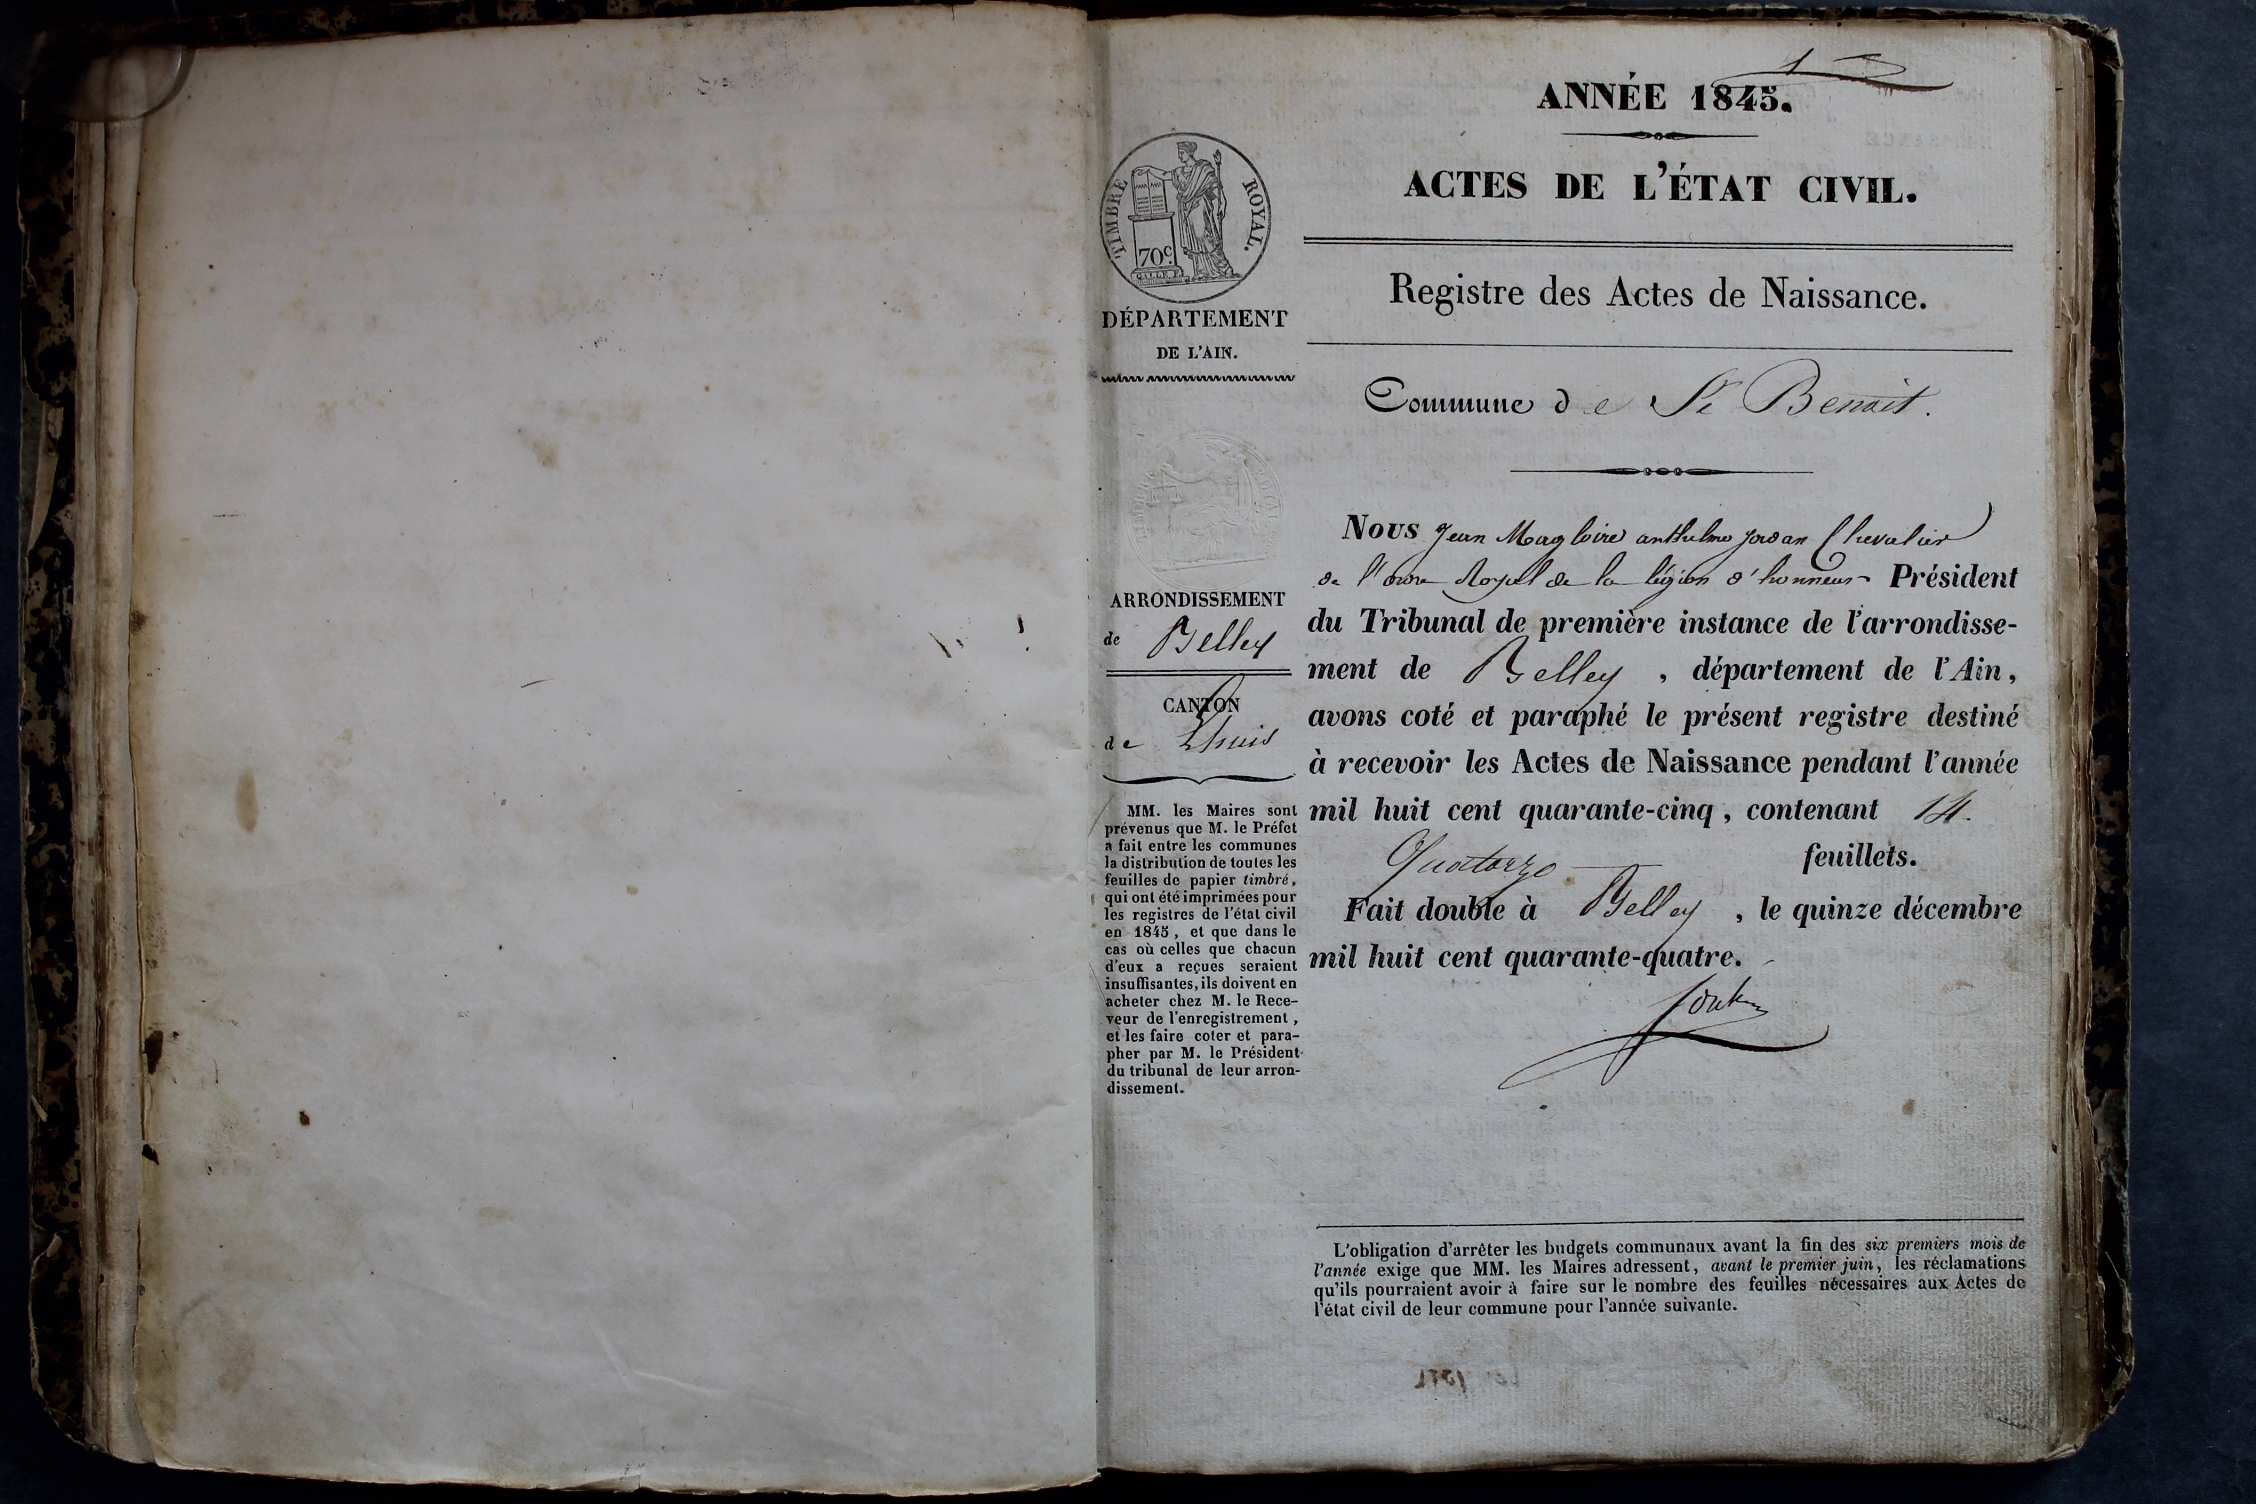 1
ANNÉE 1845.
ACTES DE L'ÉTAT CIVIL.
Registre des Actes de Naissance.
TIMBRE ROYAL.
70c.
DÉPARTEMENT
DE L'AIN.
Commune de St Benoit.
ARRONDISSEMENT
de Belley
CANTON
de Lhuis
MM. les Maires sont
prévenus que M. le Préfet
a fait entre les communes
la distribution de toutes les
feuilles de papier timbré,
qui ont été imprimées pour
les registres de l'état civil
en 1845, et que dans le
cas où celles que chacun
d'eux a reçues seraient
insuffisantes, ils doivent en
acheter chez M. le Rece-
veur de l'enregistrement,
et les faire coter et para-
pher par M. le Président
du tribunal de leur arron-
dissement.
Nous Jean Magloire anthelme Jordan Chevalier
de l'ordre Royal de la légion d'honneur Président
du Tribunal de première instance de l'arrondisse-
ment de Belley, département de l'Ain,
avons coté et paraphé le présent registre destiné
à recevoir les Actes de Naissance pendant l'année
mil huit cent quarante-cinq, contenant 14.
Quatorze feuillets.
Fait double à Belley, le quinze décembre
mil huit cent quarante-quatre.
L'obligation d'arrêter les budgets communaux avant la fin des six premiers mois de
l'année exige que MM. les Maires adressent, avant le premier juin, les réclamations
qu'ils pourraient avoir à faire sur le nombre des feuilles nécessaires aux Actes de
l'état civil de leur commune pour l'année suivante.